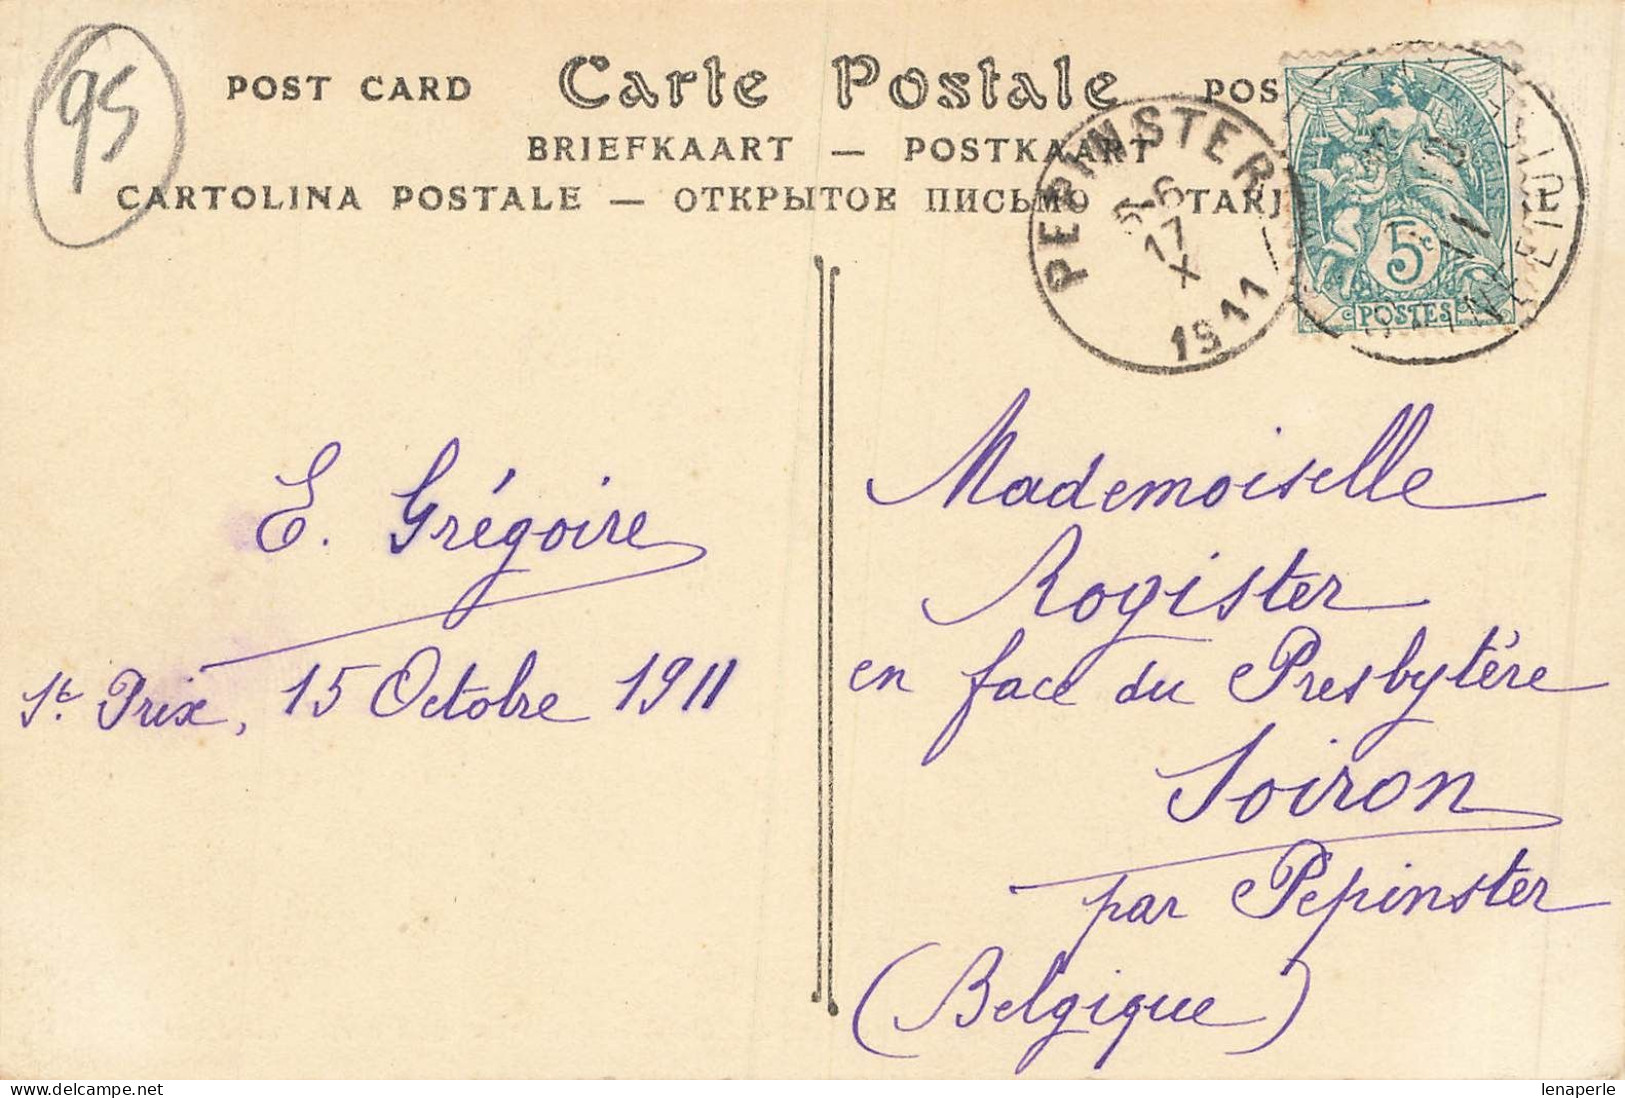 95
POST CARD Carte Postale POS
BRIEFKAART — POSTKAART
CARTOLINA POSTALE — ОТКРЫТОЕ ПИСЬМО TARJ
PEPINSTER
5-6
17
X
1911
5c
POSTES
E. Grégoire
St. Prix, 15 Octobre 1911
Mademoiselle
Rogister
en face du Presbytère
Soiron
par Pepinster
(Belgique)
lenaperle